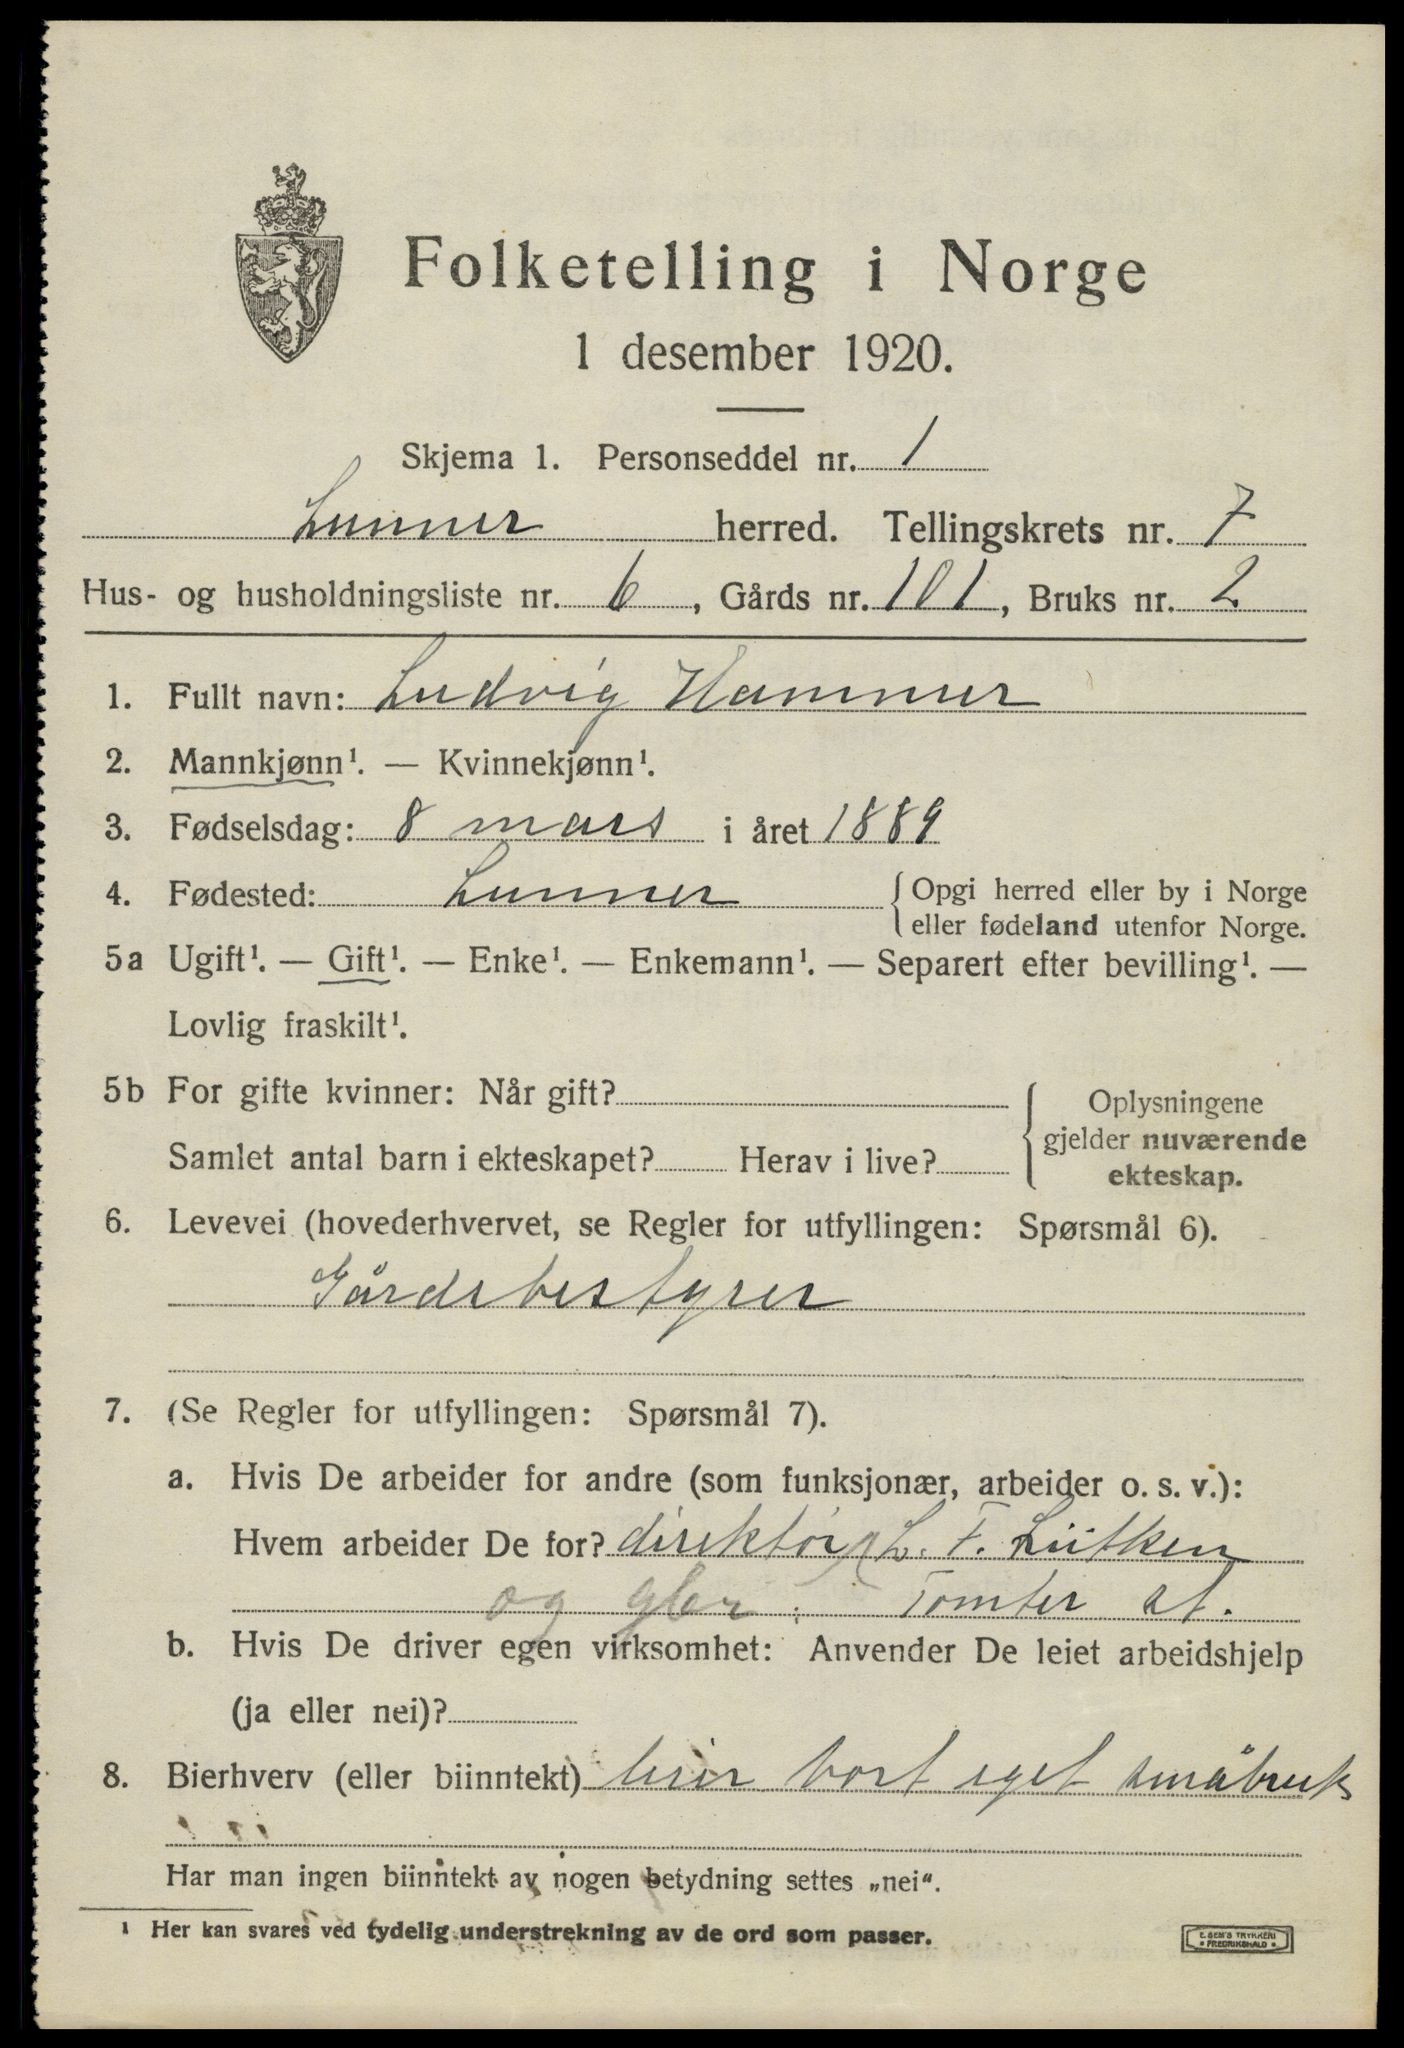 Folketelling i Norge
1 desember 1920.
Skjema 1. Personseddel nr. 1
Lunner herred. Tellingskrets nr. 7
Hus- og husholdningsliste nr. 6, Gårds nr. 101, Bruks nr. 2
1. Fullt navn: Ludvig Hammer
2. Mannkjønn¹. — Kvinnekjønn¹.
3. Fødselsdag: 8 mars i året 1889
4. Fødested: Lunner { Opgi herred eller by i Norge
eller fødeland utenfor Norge.
5a Ugift¹. — Gift¹. — Enke¹. — Enkemann¹. — Separert efter bevilling¹. —
Lovlig fraskilt¹.
5b For gifte kvinner: Når gift?
Samlet antal barn i ekteskapet? Herav i live?
{ Oplysningene
gjelder nuværende
ekteskap.
6. Levevei (hovederhvervet, se Regler for utfyllingen: Spørsmål 6).
Gårdsbestyrer
7. (Se Regler for utfyllingen: Spørsmål 7).
a. Hvis De arbeider for andre (som funksjonær, arbeider o. s. v.):
Hvem arbeider De for? direktør L. F. Lütken
og gbr Tomter st.
b. Hvis De driver egen virksomhet: Anvender De leiet arbeidshjelp
(ja eller nei)?
8. Bierhverv (eller biinntekt) leier bort eget småbruk
Har man ingen biinntekt av nogen betydning settes „nei“.
¹ Her kan svares ved tydelig understrekning av de ord som passer.
E. SEM'S TRYKKERI
• FREDRIKSHALD •